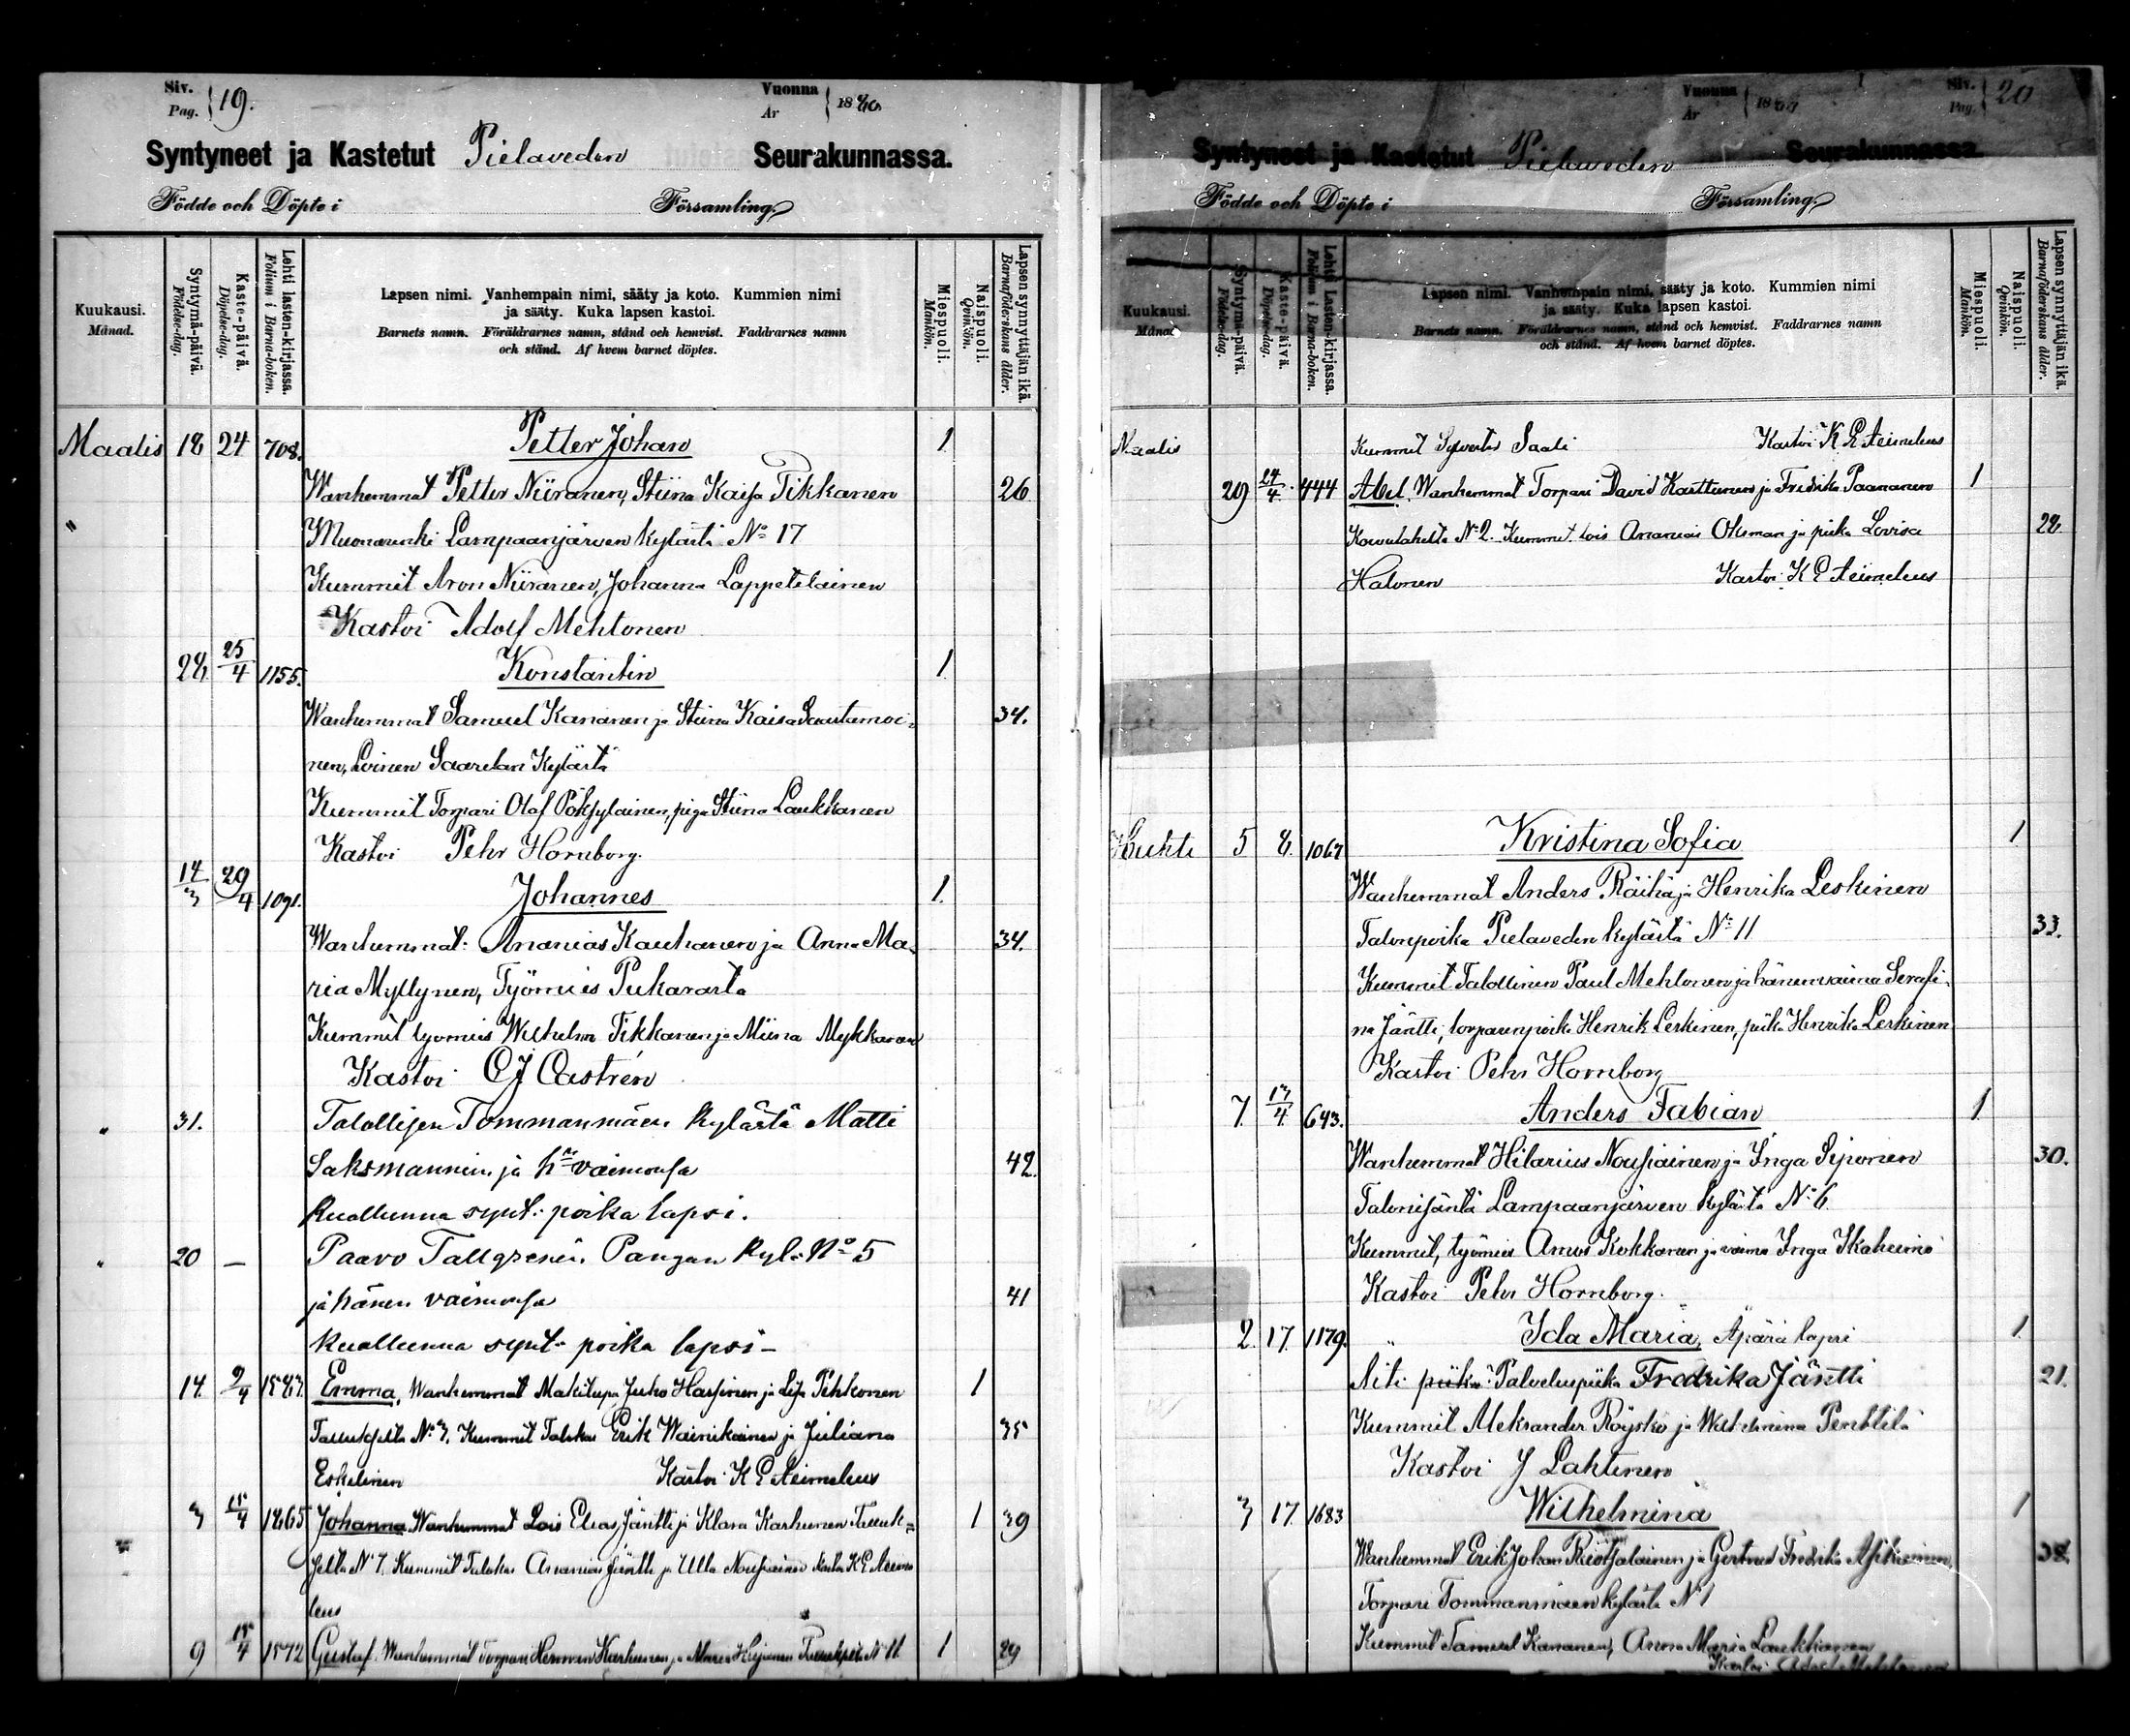 Siv. Pag. 19.
Vuonna År 18
Syntyneet ja Kastetut Pielaveden Seurakunnassa.
Födde och Döpte i Församling.
Kuukausi. Månad.
Syntymä-päivä. Födelse-dag.
Kaste-päivä. Döpelse-dag.
Lehti lasten-kirjassa. Folium i Barna-boken.
Lapsen nimi. Vanhempain nimi, sääty ja koto. Kummien nimi
ja sääty. Kuka lapsen kastoi.
Barnets namn. Föräldrarnes namn, stånd och hemvist. Faddrarnes namn
och stånd. Af hvem barnet döptes.
Miespuoli. Mankön.
Naispuoli. Qvinkön.
Lapsen synnyttäjän ikä. Barnaföderskans ålder.
Maalis 18 24 708. Petter Johan 1
Wanhemmat Petter Niiranen, Stiina Kaisa Tikkanen 26
" Lampaanjärven kylästä No 17
Kummit Aron Niiranen, Johanna Lappetelainen
Kastoi Adolf Mehtonen
28 25/4 1155. Konstantin 1
Wanhemmat Samuel Kananen ja Stiina Kaisa Sautamoi= 34.
nen, Loinen Saarelan Kylästä
Kummit Torpari Olaf, piga Stiina Laukkanen
Kastoi Pehr Hornborg.
14/3 29/4 1091. Johannes 1.
Wanhemmat: Ananias Kauhanen ja Anna Ma= 34.
ria Myllynen, Työmies Pukarasta
Kummit työmies Wilhelm Tikkanen ja Miina Mykkanen
Kastoi CJ Castrén
" 31. Talollisen Tommanmäen kylästä Matti
Saksmannin ja hn vaimonsa 42.
kuolluna synt. poika lapsi.
" 20 — Paavo Tallgrenin Pangan kyl. No 5
ja hänen vaimonsa 41
kuolluna synt. poika lapsi –
14. 2/4 1587. Emma, Wanhemmat Mäkitupa Juho ja Lisa Pehkonen 1
No 3. Kummit Erik Wainikainen ja Juliana 35
Eskelinen Kastoi K E Aeimeleus
3 15/4 1865 Johanna Wanhemmat Lois Elias Jäntti ja Klara Karhunen Tauk= 1 39
N 7. Kummit Ananias Jäntti ja Ulla Nousiainen Kastoi K E Aeime
leus
9 15/4 1572 Gustaf. Wanhemmat Torpari Herman Karhunen ja Maria N 11. 1 29
Vuonna År 18
Siv. Pag. 20
Syntyneet ja Kastetut Pielaveden Seurakunnassa.
Födde och Döpte i Församling.
Kuukausi. Månad.
Syntymä-päivä. Födelse-dag.
Kaste-päivä. Döpelse-dag.
Lehti lasten-kirjassa. Folium i Barna-boken.
Lapsen nimi. Vanhempain nimi, sääty ja koto. Kummien nimi
ja sääty. Kuka lapsen kastoi.
Barnets namn. Föräldrarnes namn, stånd och hemvist. Faddrarnes namn
och stånd. Af hvem barnet döptes.
Miespuoli. Mankön.
Naispuoli. Qvinkön.
Lapsen synnyttäjän ikä. Barnaföderskans ålder.
Maalis Kummit Saali Kastoi K E Aeimeleus
29 24/4 444 Abel. Wanhemmat Torpari David Karttunen ja Fredrika Paananen 1
No 2. Kummit lois Ananias Oksman ja piika Lovisa 28.
Halonen Kastoi K E Aeimeleus
Huhti 5 8. 1067 Kristina Sofia 1
Wanhemmat Anders Räihä ja Henrika Leskinen
Talonpoika Pielaveden kylästä No 11 33.
Kummit Talollinen Paul Mehtonen ja hänen vaimo Serafi=
na Jäntti, torparinpoika Henrik Leskinen, piika Henrika Leskinen
Kastoi Pehr Hornborg
7. 13/4 643. Anders Fabian 1.
Wanhemmat Hilarius Nousiainen ja Inga Siponen 30.
Talonisäntä Lampaanjärven kylästä No 6
Kummit, työmies Amos Kokkonen ja vaimo Inga
Kastoi Pehr Hornborg.
2. 17. 1179. " Ida Maria, Äpärä lapsi 1
Äiti piika Palveluspiika Fredrika Jäntti 21.
Kummit Aleksander Röyskö ja Wilhelmina Penttilä
Kastoi J Lahtinen
3 17. 1683 Wilhelmina 1
Wanhemmat Erik Johan ja Gertrud Fredrika 38.
Torpari Tommanmäen kylästä N 1
Kummit Samuel Kananen, Anna Maria Laukkanen
Kastoi Adolf Mehtonen